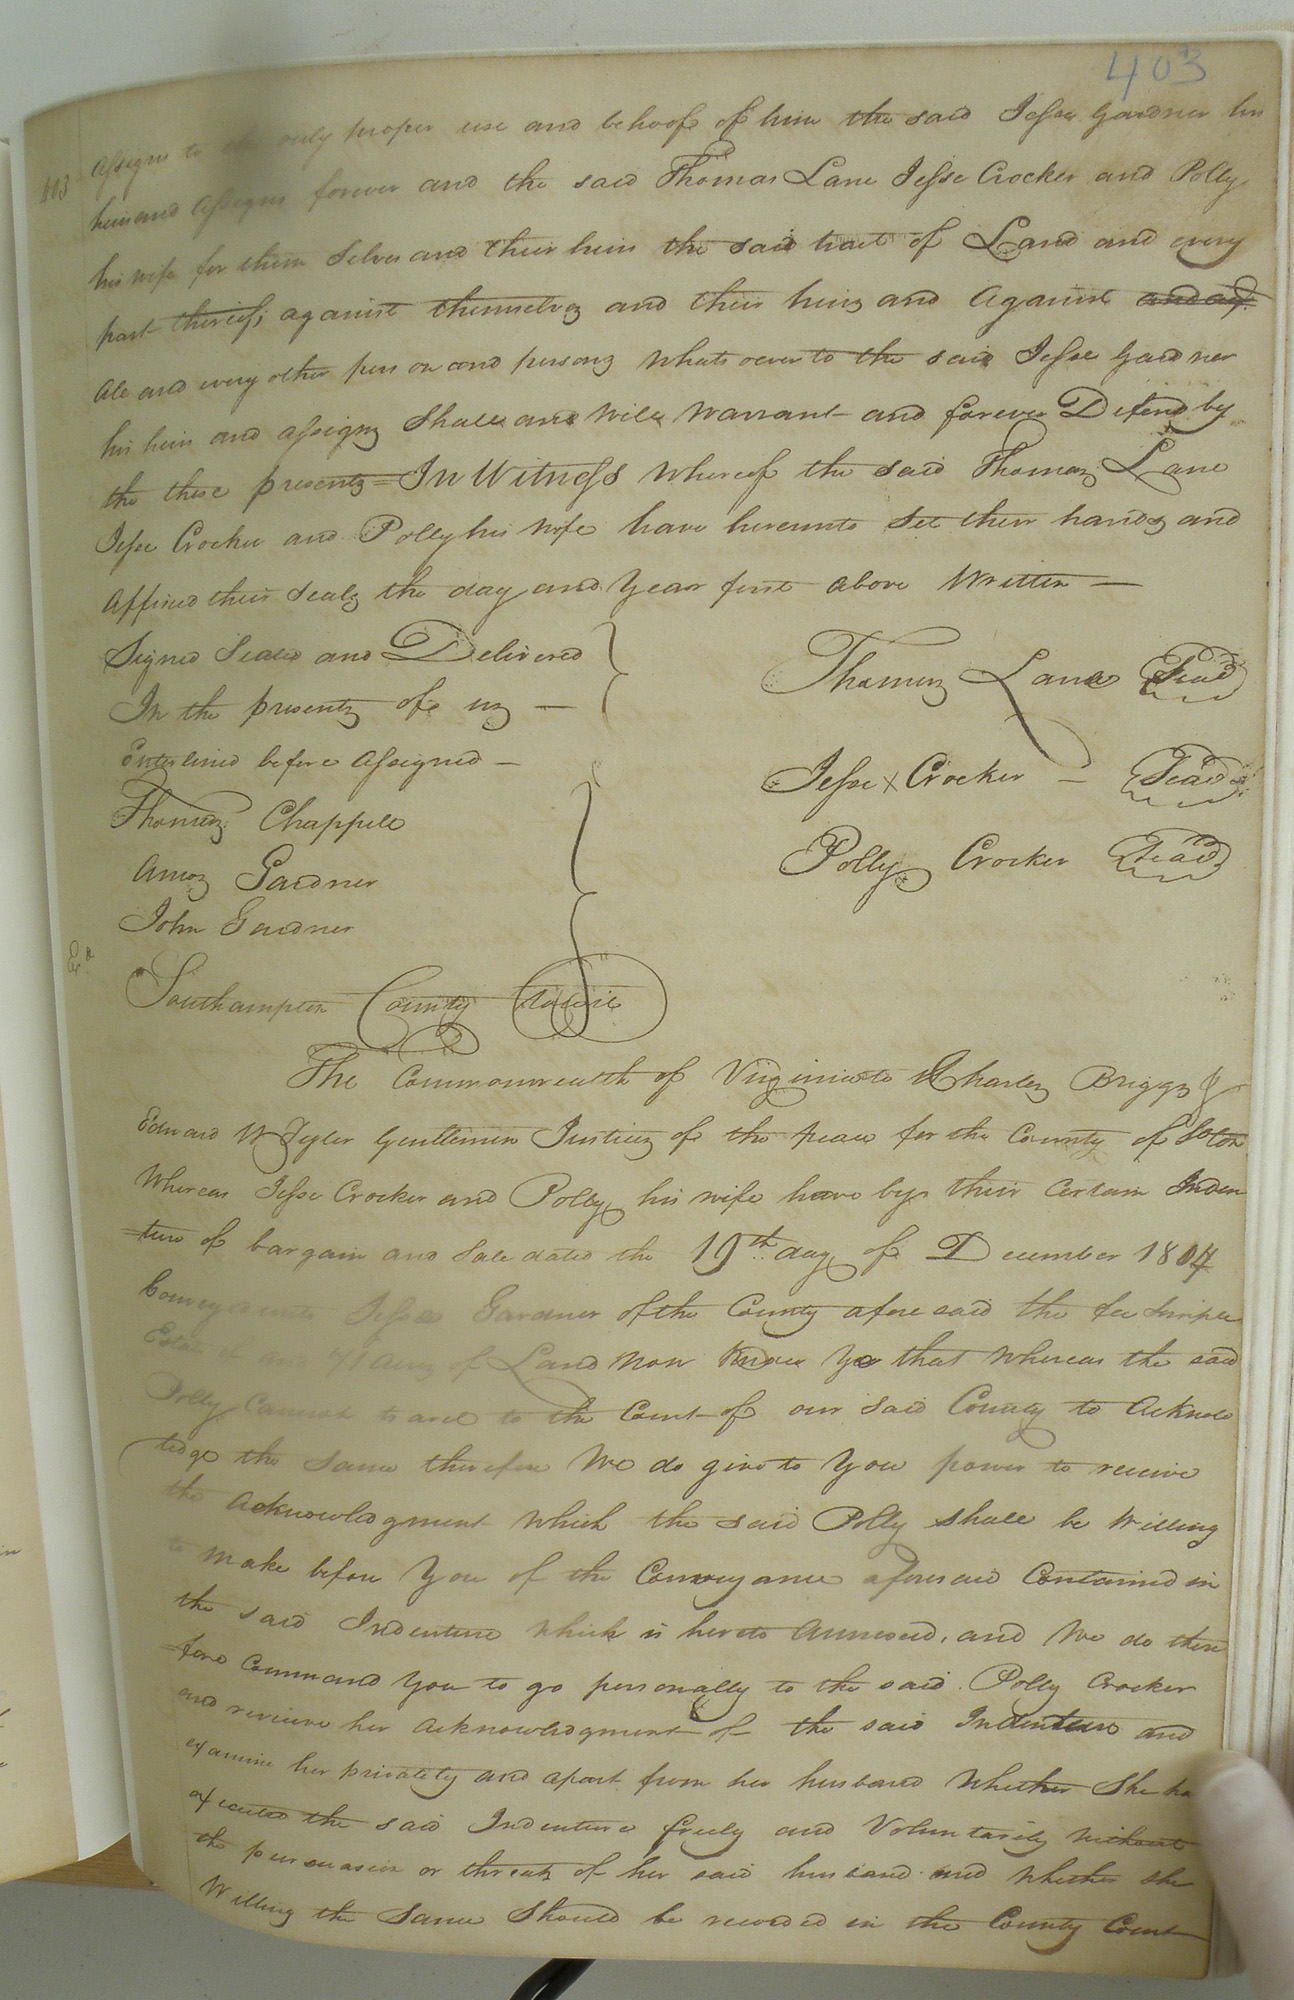 403
403
assigns to the only proper use and behoof of him the said Jesse Gardner his
heirs and assigns forever and the said Thomas Lane Jesse Crocker and Polly
his wife for them Selves and their heirs the said tract of Land and every
part thereof, against themselves and their heirs and against and all
All and every other person and persons Whatsoever to the said Jesse Gardner
his heirs and assigns Shall and Will Warrant and forever Defend by
the these presents = In Witness Whereof the said Thomas Lane
Jesse Crocker and Polly his wife have hereunto Set their hands and
Affixed their Seals the day and Year first above Written —
Signed Sealed and Delivered
In the presents of us —
Enterlined before assigned —
Thomas Lane Seal
Jesse X Crocker — Seal
Polly Crocker Seal
Thomas Chappell
Amos Gardner
John Gardner
Exd
Southampton County towit
The Commonwealth of Virginia to Charles Briggs &
Edward W Gentlemen Justices of the peace for the County of Soton
Whereas Jesse Crocker and Polly his wife have by their Certain Inden
ture of bargain and Sale dated the 19th day of December 1804
Conveyed unto Jesse Gardner of the County aforesaid the fee Simple
Estate of and 71 Acres of Land Now Know Ye that Whereas the said
Polly Cannot travel to the Court of our said County to Acknow
ledge the Same therefore We do give to You power to receive
the Acknowledgment Which the said Polly shall be Willing
to Make before You of the Conveyance aforesaid Contained in
the said Indenture which is hereto Annexed, and We do there
=fore Command You to go personally to the said Polly Crocker
and receive her Acknowledgment of the said Indenture and
examine her privately and apart from her husband Whether She ha
executed the said Indenture freely and Voluntarily Without
the persuasion or threats of her said husband and Whether she
Willing the Same Should be recorded in the County Court